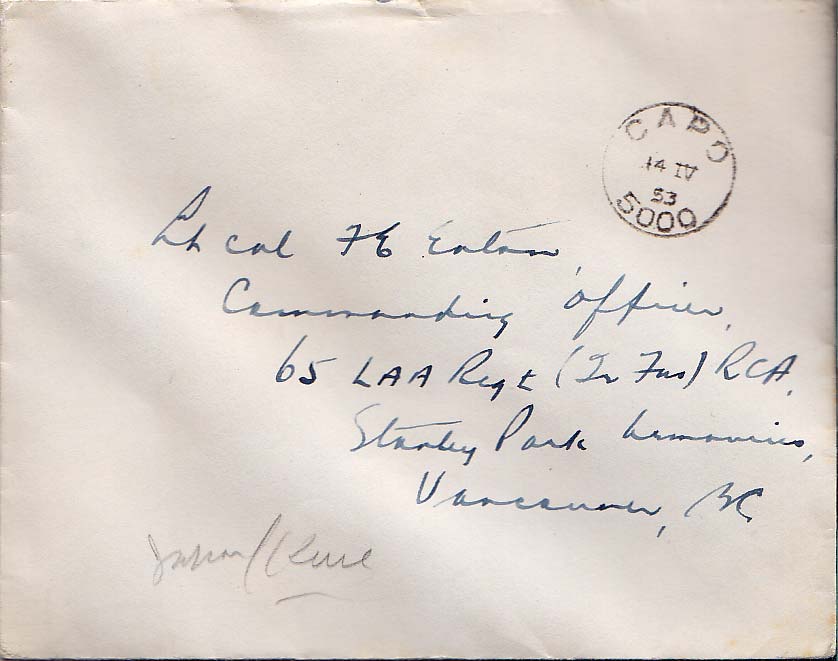 CAPO
14 IV
53
5000
Lt Col FE Eaton,
Commanding Officer,
65 LAA Regt (Ir Fus) RCA,
Stanley Park Armouries,
Vancouver, BC
Japan/Kure